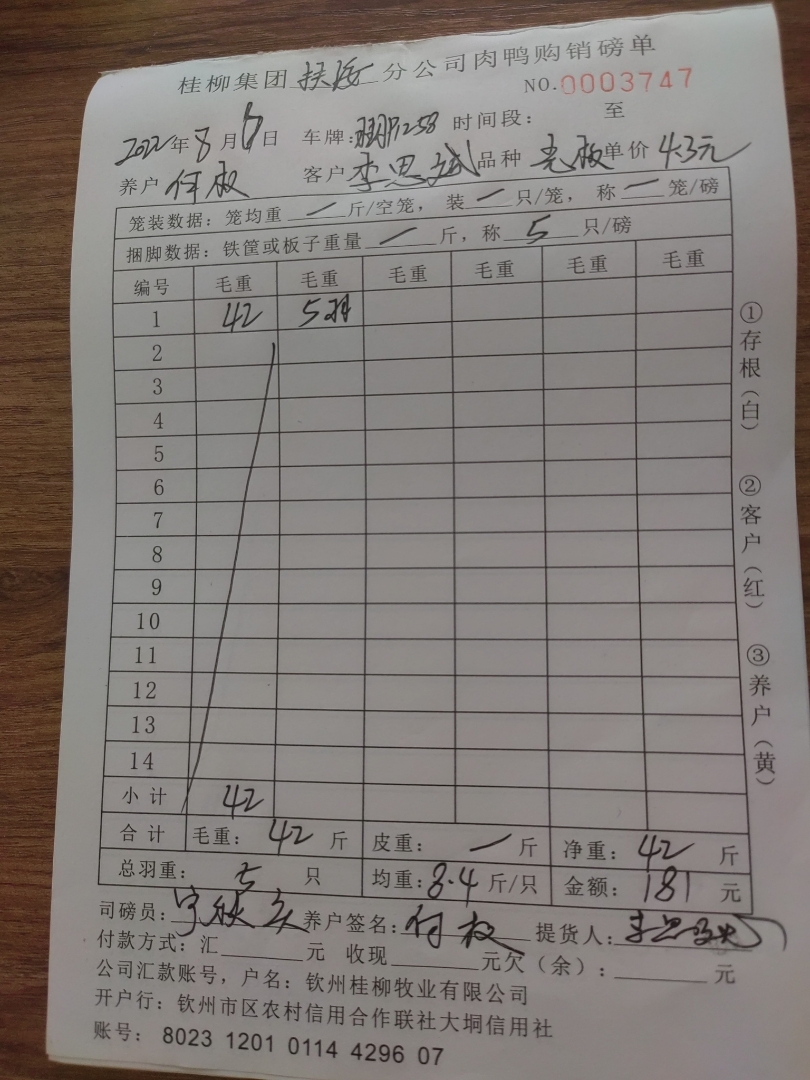 桂柳集团 分公司肉鸭购销磅单
NO.0003747
2022年8月6日 车牌: 258 时间段: 至
养户 何权 客户 李思斌 品种 单价 4.3元
笼装数据: 笼均重 一 斤/空笼, 装 一 只/笼, 称 一 笼/磅
捆脚数据: 铁筐或板子重量 一 斤, 称 5 只/磅
编号 毛重 毛重 毛重 毛重 毛重 毛重
1 42 5羽
2
3
4
5
6
7
8
9
10
11
12
13
14
小计 42
合计 毛重: 42 斤 皮重: 一 斤 净重: 42 斤
总羽重: 5 只 均重: 8.4 斤/只 金额: 181 元
司磅员: 养户签名: 何权 提货人: 李思斌
付款方式: 汇 元 收现 元欠(余): 元
公司汇款账号, 户名: 钦州桂柳牧业有限公司
开户行: 钦州市区农村信用合作联社大垌信用社
账号: 8023 1201 0114 4296 07
①存根(白)
②客户(红)
③养户(黄)